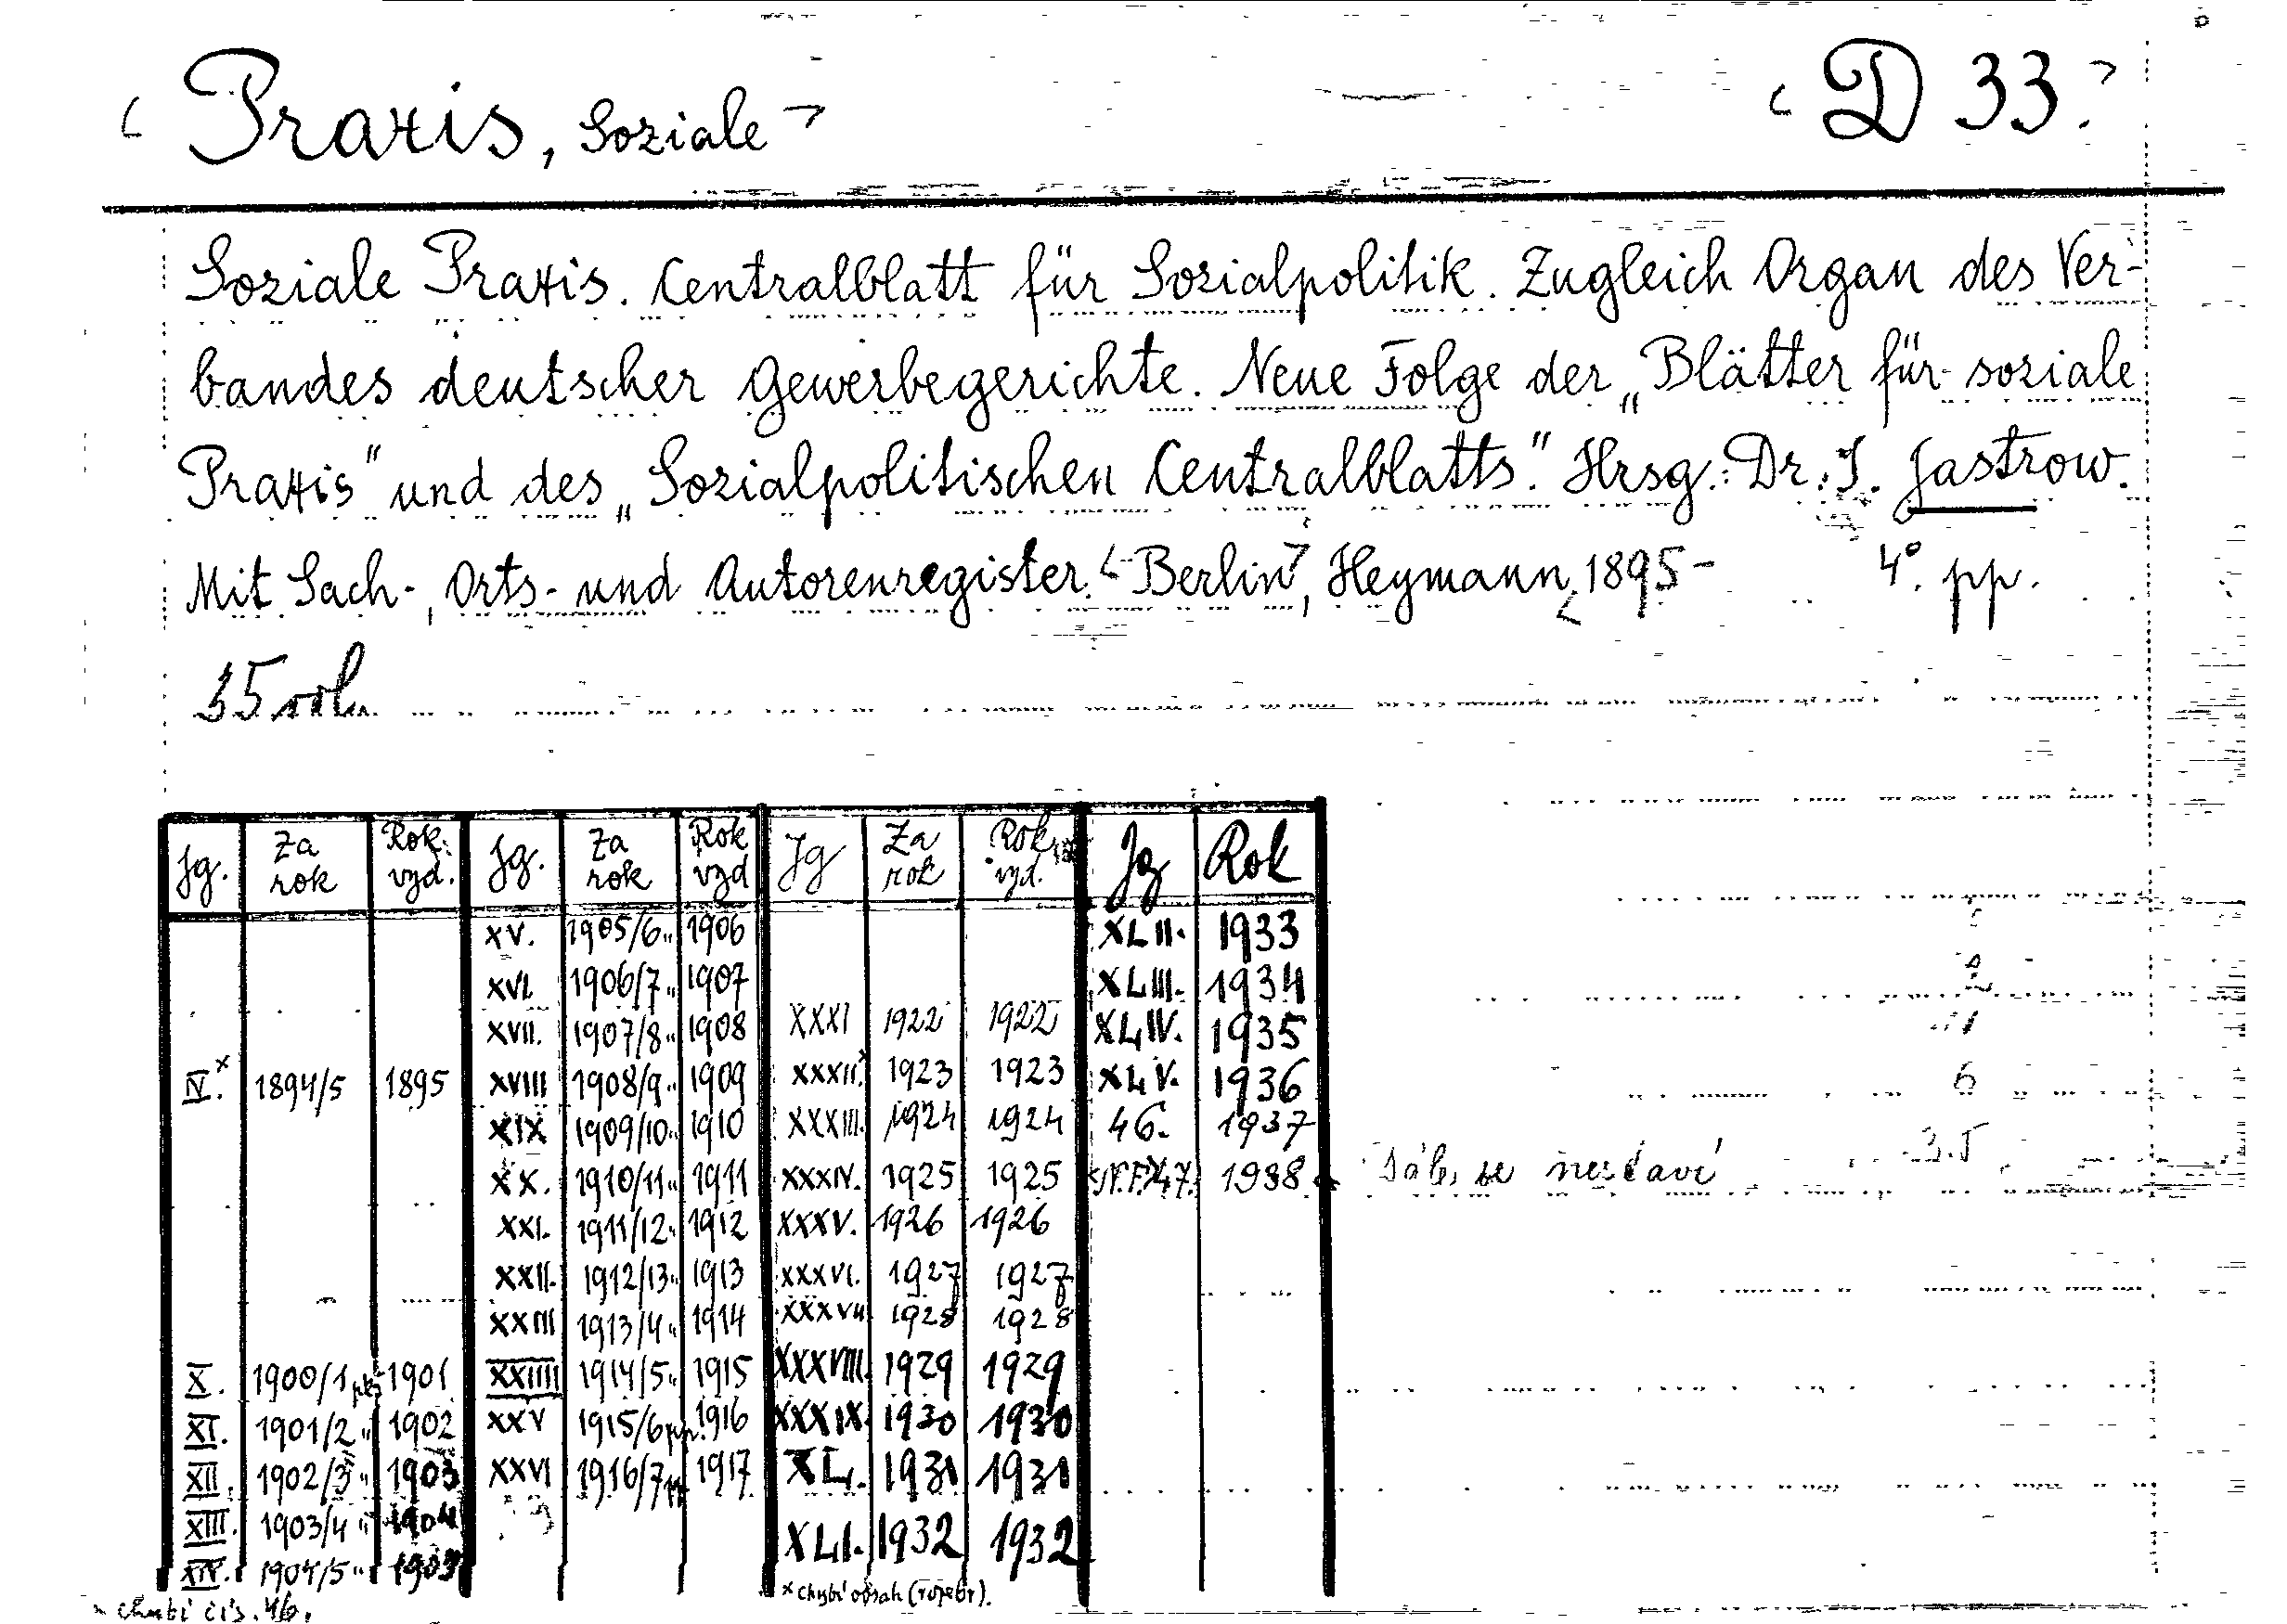 Praxis, Soziale
D 33.
Soziale Praxis. Centralblatt für Sozialpolitik. Zugleich Organ des Ver-
bandes deutscher Gewerbegerichte. Neue Folge der „Blätter für soziale
Praxis" und des „Sozialpolitischen Centralblatts." Hrsg.: Dr. J. Jastrow.
Mit Sach-, Orts- und Autorenregister. Berlin, Heymann, 1895- 4°. pp.
35
Jg. Za rok Rok vyd. Jg. Za rok Rok vyd Jg Za rok Rok vyd. Jg Rok
XV. 1905/6 „ 1906 XLII. 1933
XVI. 1906/7 „ 1907 XLIII. 1934
XVII. 1907/8 „ 1908 XXXI 1922 1922 XLIV. 1935
IV.x 1894/5 1895 XVIII 1908/9 „ 1909 XXXII.x 1923 1923 XLV. 1936
XIX 1909/10 „ 1910 XXXIII. 1924 1924 46. 1937
XX. 1910/11 „ 1911 XXXIV. 1925 1925 47. 1938
XXI. 1911/12 „ 1912 XXXV. 1926 1926
XXII. 1912/13 „ 1913 XXXVI. 1927 1927
XXIII 1913/4 „ 1914 XXXVII 1928 1928
X. 1900/1 1901 XXIIII 1914/5 „ 1915 XXXVIII. 1929 1929
XI. 1901/2 „ 1902 XXV 1915/6 pp. 1916 XXXIX. 1930 1930
XII. 1902/3 „ 1903 XXVI 1916/7 1917 XL. 1931 1931
XIII. 1903/4 „ 1904 XLI. 1932 1932
XIV. 1904/5 „ 1905
x chybí obsah (rozebr).
x chybí čís. 46.